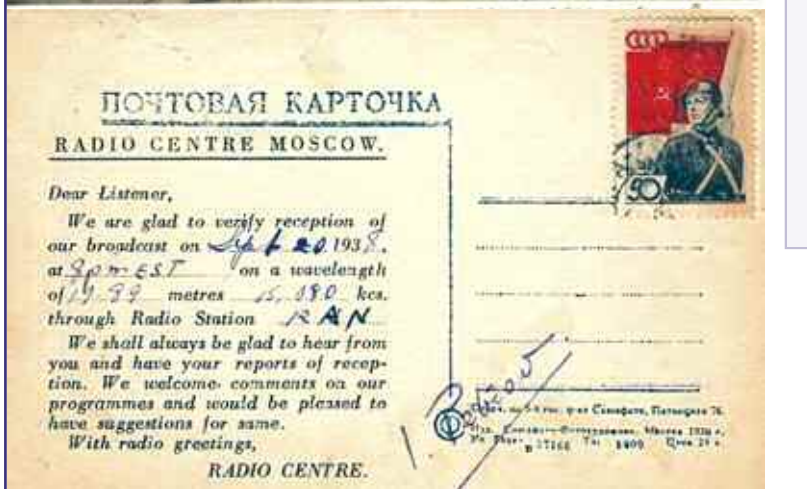 ПОЧТОВАЯ КАРТОЧКА
RADIO CENTRE MOSCOW.
Dear Listener,
We are glad to verify reception of
our broadcast on Sept 20 1938.
at 8pm EST on a wavelength
of 19.99 metres 15,080 kcs.
through Radio Station RAN
We shall always be glad to hear from
you and have your reports of recep-
tion. We welcome comments on our
programmes and would be pleased to
have suggestions for same.
With radio greetings,
RADIO CENTRE.
СССР
50
Москва 1936 г.